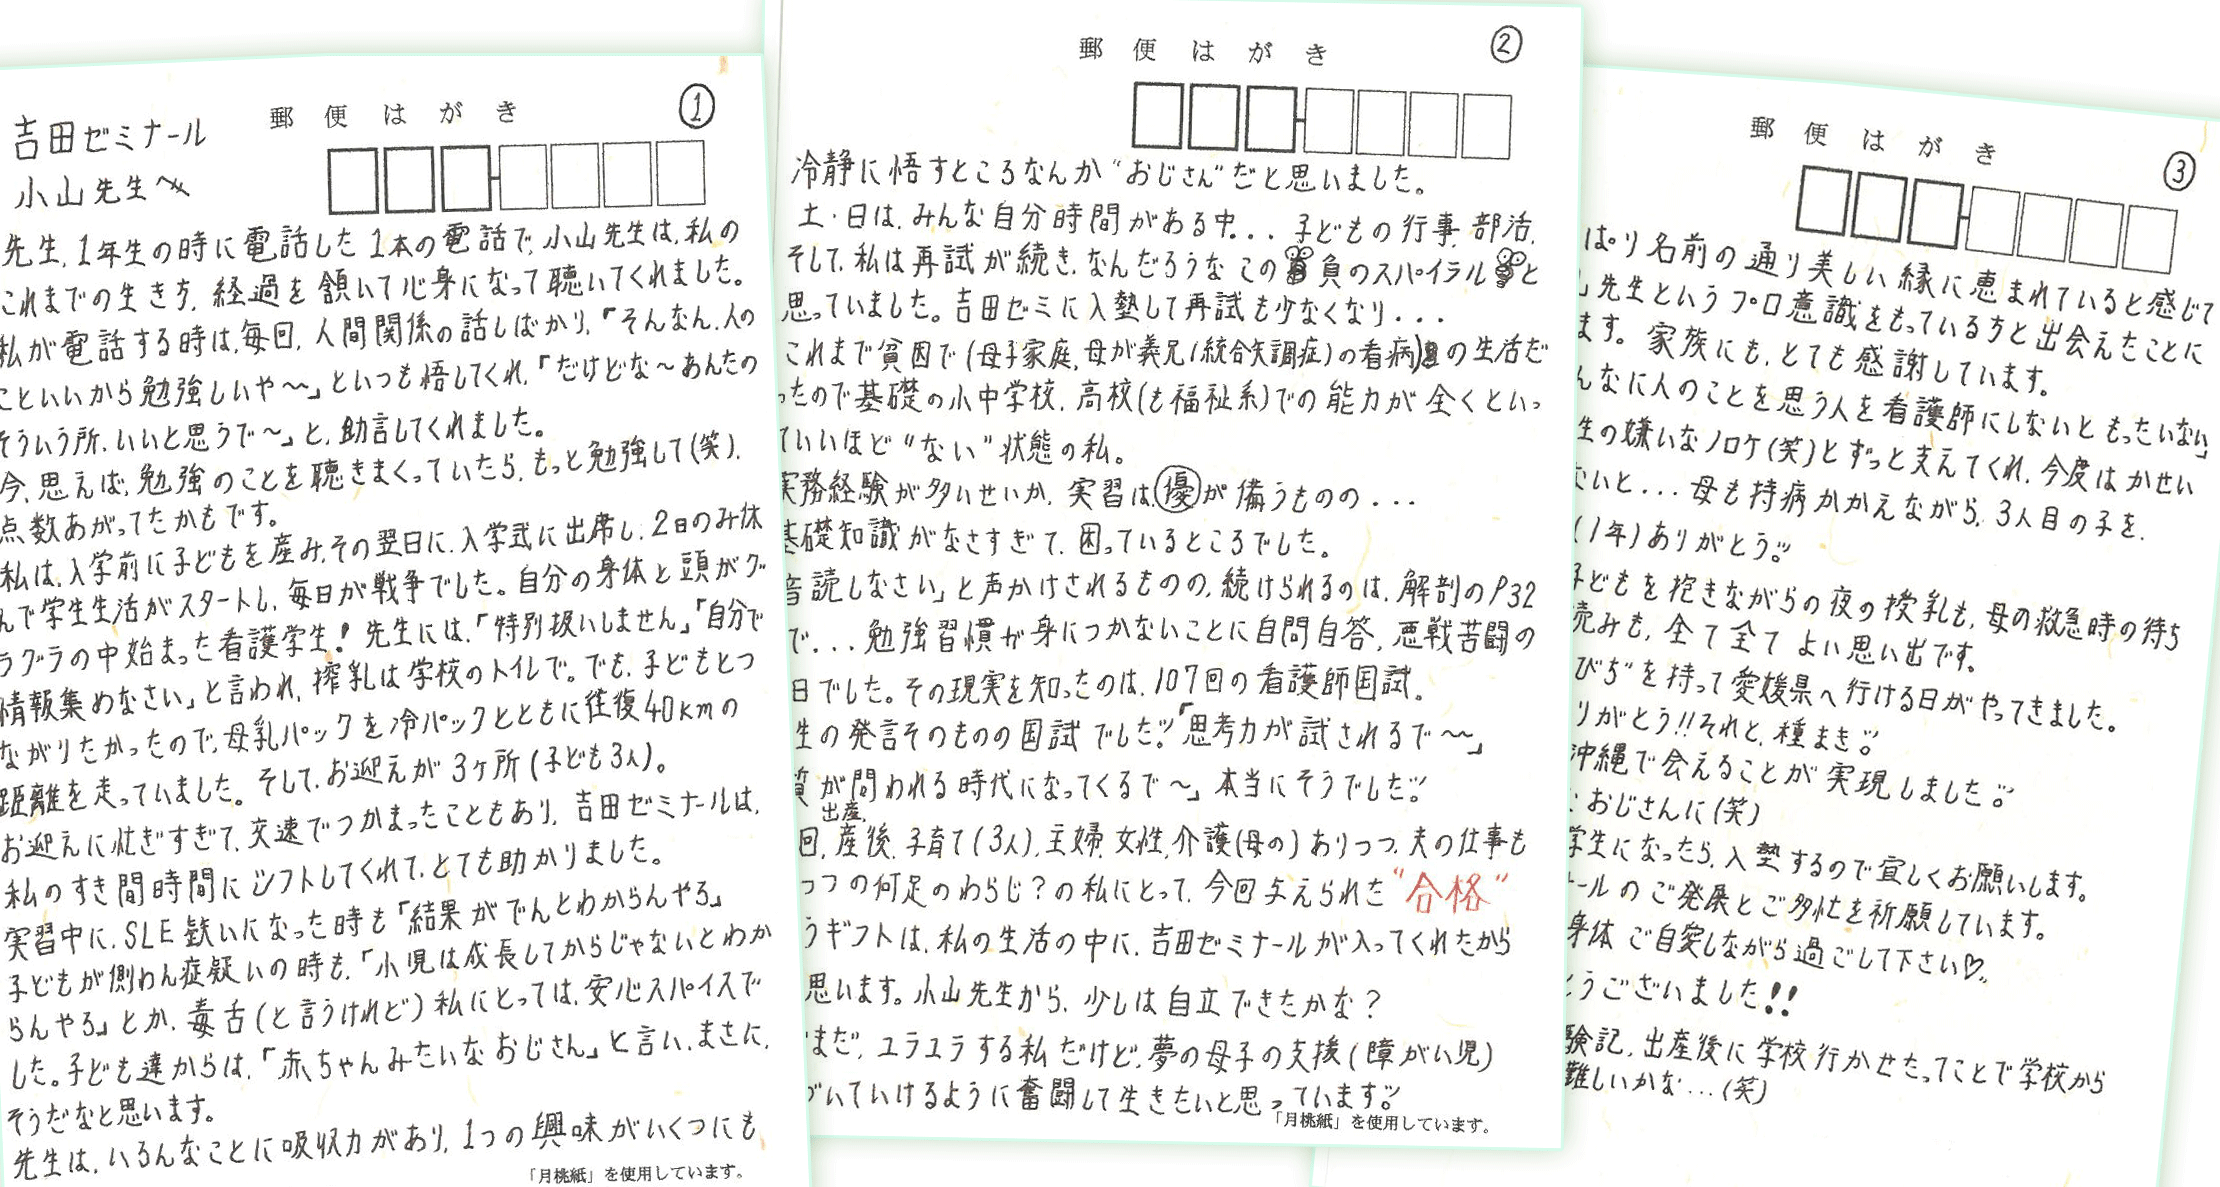 郵便はがき
①
吉田ゼミナール
小山先生へ
先生、1年生の時に電話した1本の電話で、小山先生は、私の
これまでの生き方、経過を頷いて心身になって聴いてくれました。
私が電話する時は、毎回、人間関係の話しばかり、「そんなん、人の
こといいから勉強しいや〜」といつも悟してくれ、「だけどな〜あんたの
そういう所、いいと思うで〜」と、助言してくれました。
今、思えば、勉強のことを聴きまくっていたら、もっと勉強して(笑)、
点数あがってたかもです。
私は、入学前に子どもを産み、その翌日に、入学式に出席し、2日のみ休
んで学生生活がスタートし、毎日が戦争でした。自分の身体と頭がグ
ラグラの中始まった看護学生!先生には、「特別扱いしません」「自分で
情報集めなさい」と言われ、搾乳は学校のトイレで。でも、子どもとつ
ながりたかったので、母乳パックを冷パックとともに往復40kmの
距離を走っていました。そして、お迎えが3ヶ所(子ども3人)。
お迎えに忙ぎすぎて、交速でつかまったこともあり、吉田ゼミナールは、
私のすき間時間にシフトしてくれて、とても助かりました。
実習中に、SLE疑いになった時も「結果がでんとわからんやろ」
子どもが側わん症疑いの時も、「小児は成長してからじゃないとわか
らんやろ」とか、毒舌(と言うけれど)私にとっては、安心スパイスで
した。子ども達からは、「赤ちゃんみたいなおじさん」と言い、まさに、
そうだなと思います。
先生は、いろんなことに吸収力があり、1つの興味がいくつにも
「月桃紙」を使用しています。
郵便はがき
②
冷静に悟すところなんか“おじさん”だと思いました。
土・日は、みんな自分時間がある中...子どもの行事、部活、
そして、私は再試が続き、なんだろうな この負のスパイラルと
思っていました。吉田ゼミに入塾して再試も少なくなり...
これまで貧困で(母子家庭、母が義兄(統合失調症)の看病)の生活だ
ったので基礎の小中学校、高校(も福祉系)での能力が全くといっ
ていいほど“ない”状態の私。
実務経験が多いせいか、実習は、優が備うものの...
基礎知識がなさすぎて、困っているところでした。
音読しなさい」と声かけされるものの、続けられるのは、解剖のP32
で...勉強習慣が身につかないことに自問自答、悪戦苦闘の
日でした。その現実を知ったのは、107回の看護師国試。
生の発言そのものの国試でした。「思考力が試されるで〜」
質が問われる時代になってくるで〜」本当にそうでした。
出産、
回、産後、子育て(3人)、主婦、女性、介護(母の)ありつつ、夫の仕事も
つつの何足のわらじ?の私にとって、今回与えられた“合格”
うギフトは、私の生活の中に、吉田ゼミナールが入ってくれたから
思います。小山先生から、少しは自立できたかな?
まだ、ユラユラする私だけど、夢の母子の支援(障がい児)
づいていけるように奮闘して生きたいと思っています。
「月桃紙」を使用しています。
郵便はがき
③
ぱり名前の通り美しい縁に恵まれていると感じて
先生というプロ意識をもっている方と出会えたことに
ます。家族にも、とても感謝しています。
んなに人のことを思う人を看護師にしないともったいない」
生の嫌いなノロケ(笑)とずっと支えてくれ、今度はかせい
ないと...母も持病かかえながら、3人目の子を、
(1年)ありがとう。
子どもを抱きながらの夜の授乳も、母の救急時の待ち
読みも、全て全てよい思い出です。
びぢ”を持って愛媛県へ行ける日がやってきました。
りがとう!!それと、種まき。
沖縄で会えることが実現しました。
おじさんに(笑)
学生になったら、入塾するので宜しくお願いします。
ールのご発展とご多忙を祈願しています。
身体ご自愛しながら過ごして下さい♡。
とうございました!!
験記、出産後に学校行かせたってことで学校から
難しいかな...(笑)